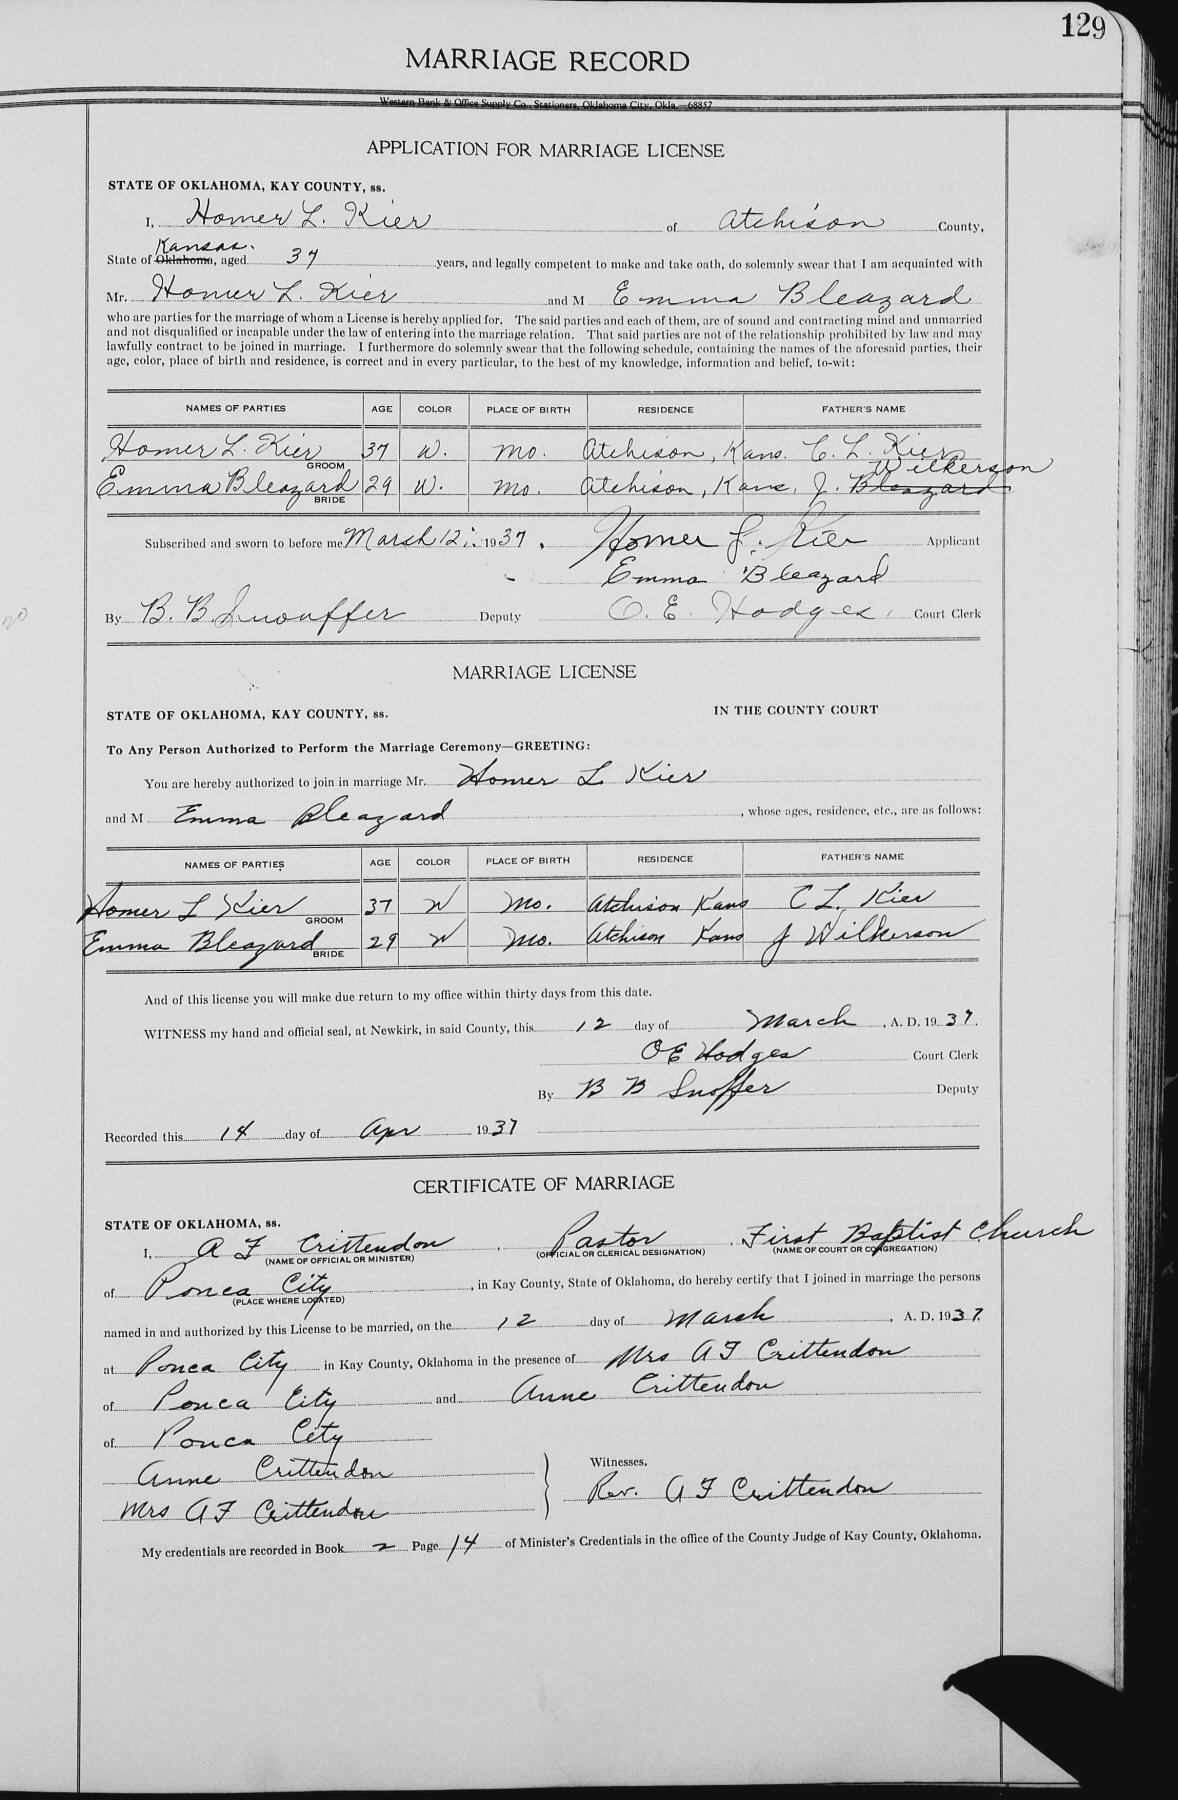 129
MARRIAGE RECORD
Western Bank & Office Supply Co., Stationers, Oklahoma City, Okla.—68857
APPLICATION FOR MARRIAGE LICENSE
STATE OF OKLAHOMA, KAY COUNTY, ss.
I, Homer L. Kier of Atchison County,
Kansas.
State of Oklahoma, aged 37 years, and legally competent to make and take oath, do solemnly swear that I am acquainted with
Mr. Homer L. Kier and M Emma Bleazard
who are parties for the marriage of whom a License is hereby applied for. The said parties and each of them, are of sound and contracting mind and unmarried
and not disqualified or incapable under the law of entering into the marriage relation. That said parties are not of the relationship prohibited by law and may
lawfully contract to be joined in marriage. I furthermore do solemnly swear that the following schedule, containing the names of the aforesaid parties, their
age, color, place of birth and residence, is correct and in every particular, to the best of my knowledge, information and belief, to-wit:
NAMES OF PARTIES AGE COLOR PLACE OF BIRTH RESIDENCE FATHER'S NAME
Homer L. Kier GROOM 37 W. Mo. Atchison, Kans. C. L. Kier
Wilkerson
Emma Bleazard BRIDE 29 W. Mo. Atchison, Kans. J. Bleazard
Subscribed and sworn to before me March 12, 1937. Homer L. Kier Applicant
Emma Bleazard
By B. B. Snouffer Deputy O. E. Hodges, Court Clerk
20
MARRIAGE LICENSE
STATE OF OKLAHOMA, KAY COUNTY, ss. IN THE COUNTY COURT
To Any Person Authorized to Perform the Marriage Ceremony—GREETING:
You are hereby authorized to join in marriage Mr. Homer L Kier
and M Emma Bleazard , whose ages, residence, etc., are as follows:
NAMES OF PARTIES AGE COLOR PLACE OF BIRTH RESIDENCE FATHER'S NAME
Homer L Kier GROOM 37 W Mo. Atchison Kans C L. Kier
Emma Bleazard BRIDE 29 W Mo. Atchison Kans J Wilkerson
And of this license you will make due return to my office within thirty days from this date.
WITNESS my hand and official seal, at Newkirk, in said County, this 12 day of March , A. D. 1937.
O E Hodges Court Clerk
By B B Snoffer Deputy
Recorded this 14 day of Apr 1937
CERTIFICATE OF MARRIAGE
STATE OF OKLAHOMA, ss.
I, A F Crittendon , Pastor , First Baptist Church
(NAME OF OFFICIAL OR MINISTER) (OFFICIAL OR CLERICAL DESIGNATION) (NAME OF COURT OR CONGREGATION)
of Ponca City , in Kay County, State of Oklahoma, do hereby certify that I joined in marriage the persons
(PLACE WHERE LOCATED)
named in and authorized by this License to be married, on the 12 day of March , A. D. 1937.
at Ponca City in Kay County, Oklahoma in the presence of Mrs A F Crittendon
of Ponca City and Anne Crittendon
of Ponca City
Anne Crittendon Witnesses.
Mrs A F Crittendon Rev. A F Crittendon
My credentials are recorded in Book 2 Page 14 of Minister's Credentials in the office of the County Judge of Kay County, Oklahoma.